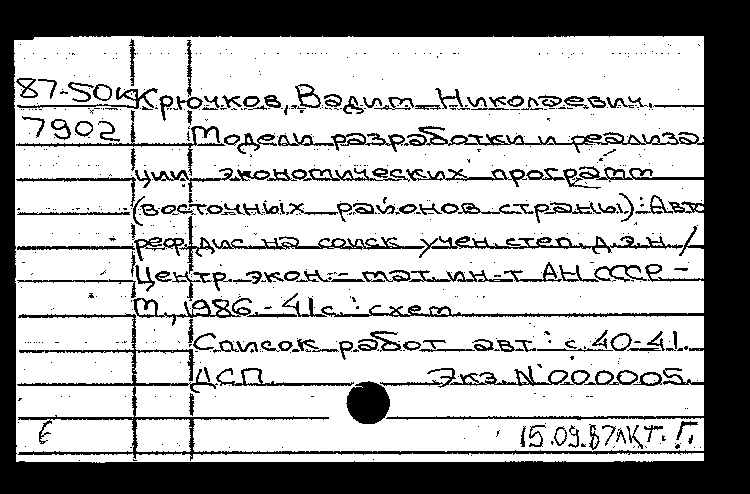 87-50к Крючков, Вадим Николаевич.
7902 Модели разработки и реализа
ции экономических программ
(восточных районов страны): Авто
реф. дис. на соиск. учен. степ. д.э.н /
Центр. экон.-мат. ин-т АН СССР -
М., 1986. - 41 с.: схем.
Список работ авт: с. 40-41.
ДСП. Экз. N 000005.
6 15.09.87